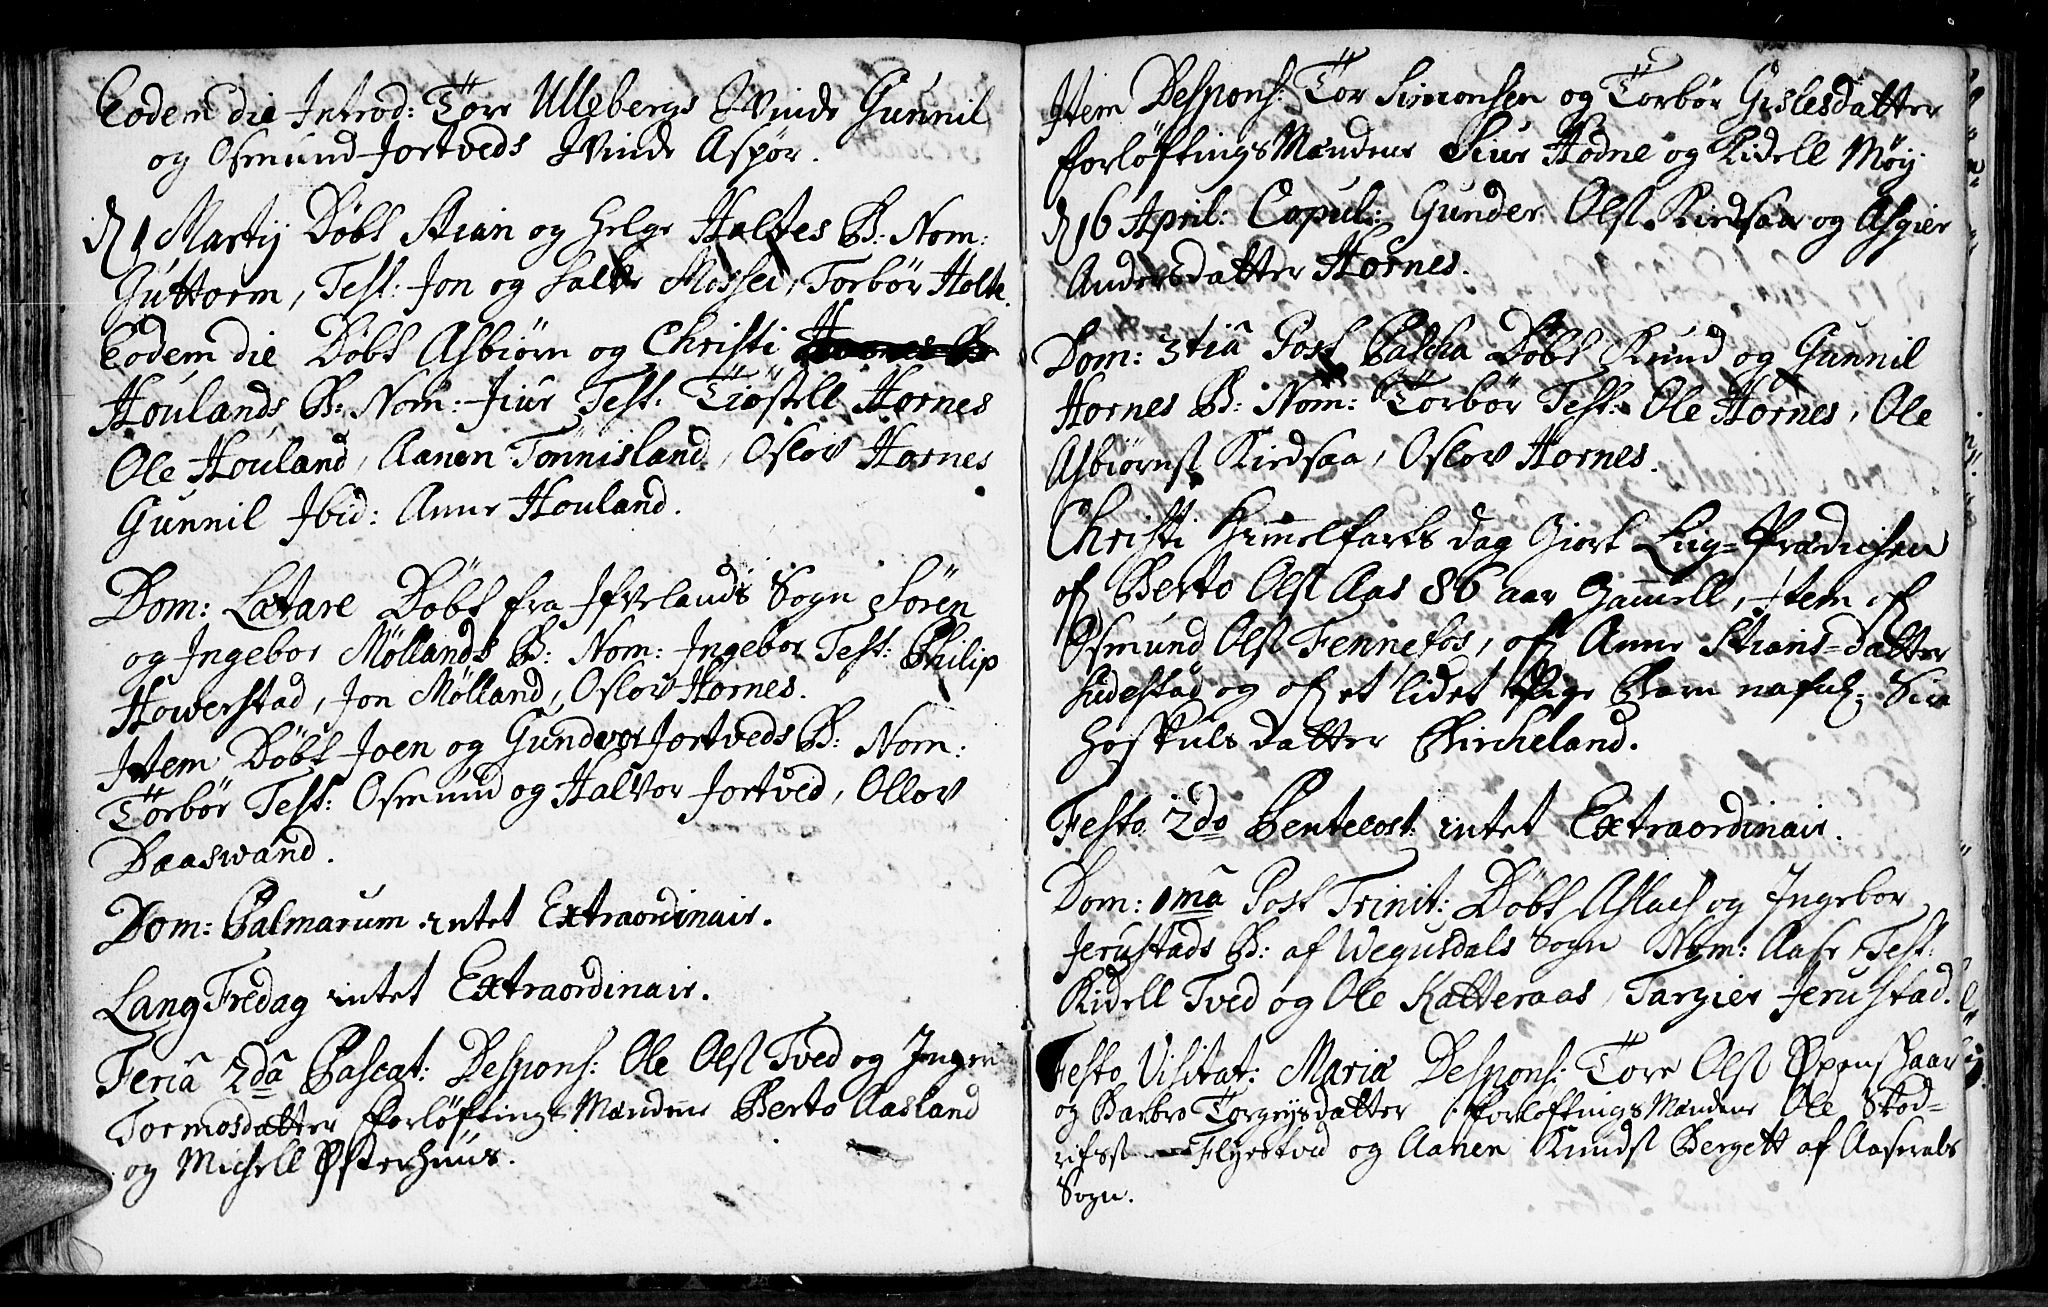 Eodem die Introd: Tore Ullebergs Qvinde Gunnil
og Osmund Jortveds Qvinde Aspør.
d. 1 Martij Døbt Stian og Helge Haltes B: Nom:
Guttorm, Test: Jon og Halve Mossei, Torbør Holte.
Eodem die Døbt Asbiørn og Christi
Houlands B: Nom: Siur Test. Tiøstell Hornes
Ole Houland, Aanen Tønnisland, Oslov Hornes
Gunnil Ibid: Anne Houland.
Dom: Lætare Døbt fra Ifvelands Sogn Søren
og Ingebor Møllands B: Nom: Ingebor Test: Philip
Howerstad, Jon Mølland, Oslov Hornes.
Item Døbt Joen og Gundvor Jortveds B: Nom:
Torbør Test: Osmund og Halvor Jortved, Ollov
Daaswand.
Dom: Palmarum intet Extraordinair.
Lang Fredag intet Extraordinair.
Feriâ 2dâ Pascat: Despons: Ole Olss Tved og Ingeri
Tormosdatter Forløftings Mændene Berto Aasland
og Michell Østerhuus.
Item Despons: Tor Simonsen og Torbør Gislesdatter
Forløftings Mændene Siur Hodne og Kidell Møy
d. 16 April: Copul: Gunder Olss. Kirdsaa og Asgier
Andersdatter Hornes.
Dom: 3tiâ Post Pascha Døbt Knud og Gunnil
Hornes B: Nom: Torbør Test: Ole Hornes, Ole
Asbiørnss Kirdsaa, Oslov Hornes.
Christi Himmelfarts dag Giort Liig=Prædichen
of Berto Olss Aas 86 aar Gammell, Item of
Osmund Olss Fennefos, of Anne Stians=datter
Sudestag og of et lidet Pige Barn nafnl: Siri
Høskulsdatter Bircheland.
Festo 2do Pentecost: intet Extraordinair.
Dom: 1mâ Post Trinit: Døbt Aslach og Ingebor
Jerustads B: af Wegusdals Sogn Nom: Aase, Test:
Kidell Tved og Ole Katteraas, Targier Jerustad.
Festo Visitat: Mariæ Despons: Tore Olss Øpenshaar
og Barbro Torgiysdatter Forløftings Mændene Ole Stod=
rifss Flyestvid og Aanen Knudss Bergett af Aaserals
Sogn.